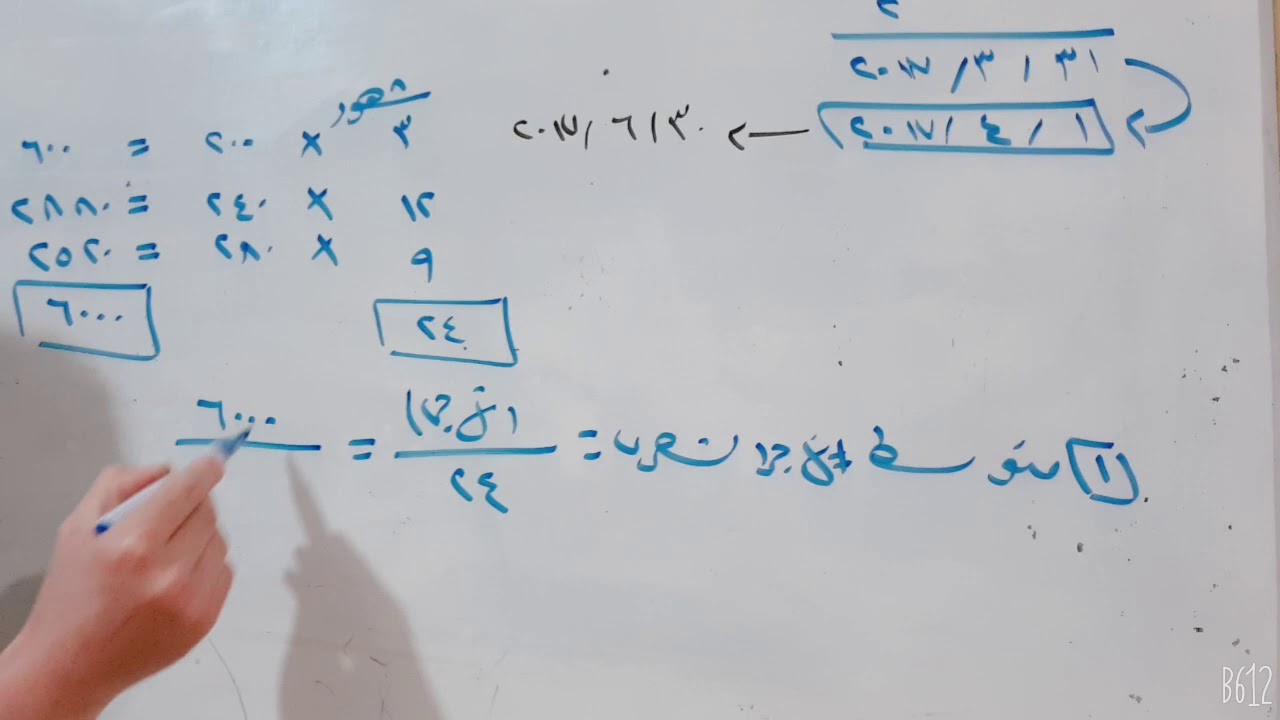 ٢٠١٧ / ٣ / ٣١
٢٠١٧ / ٤ / ١
٢٠١٧ / ٦ / ٣٠ ←
شهور
٣ × ٢٠٠ = ٦٠٠
١٢ × ٢٤٠ = ٢٨٨٠
٩ × ٢٨٠ = ٢٥٢٠
٢٤ ٦٠٠٠
١ متوسط = = ٦٠٠٠
٢٤
B612